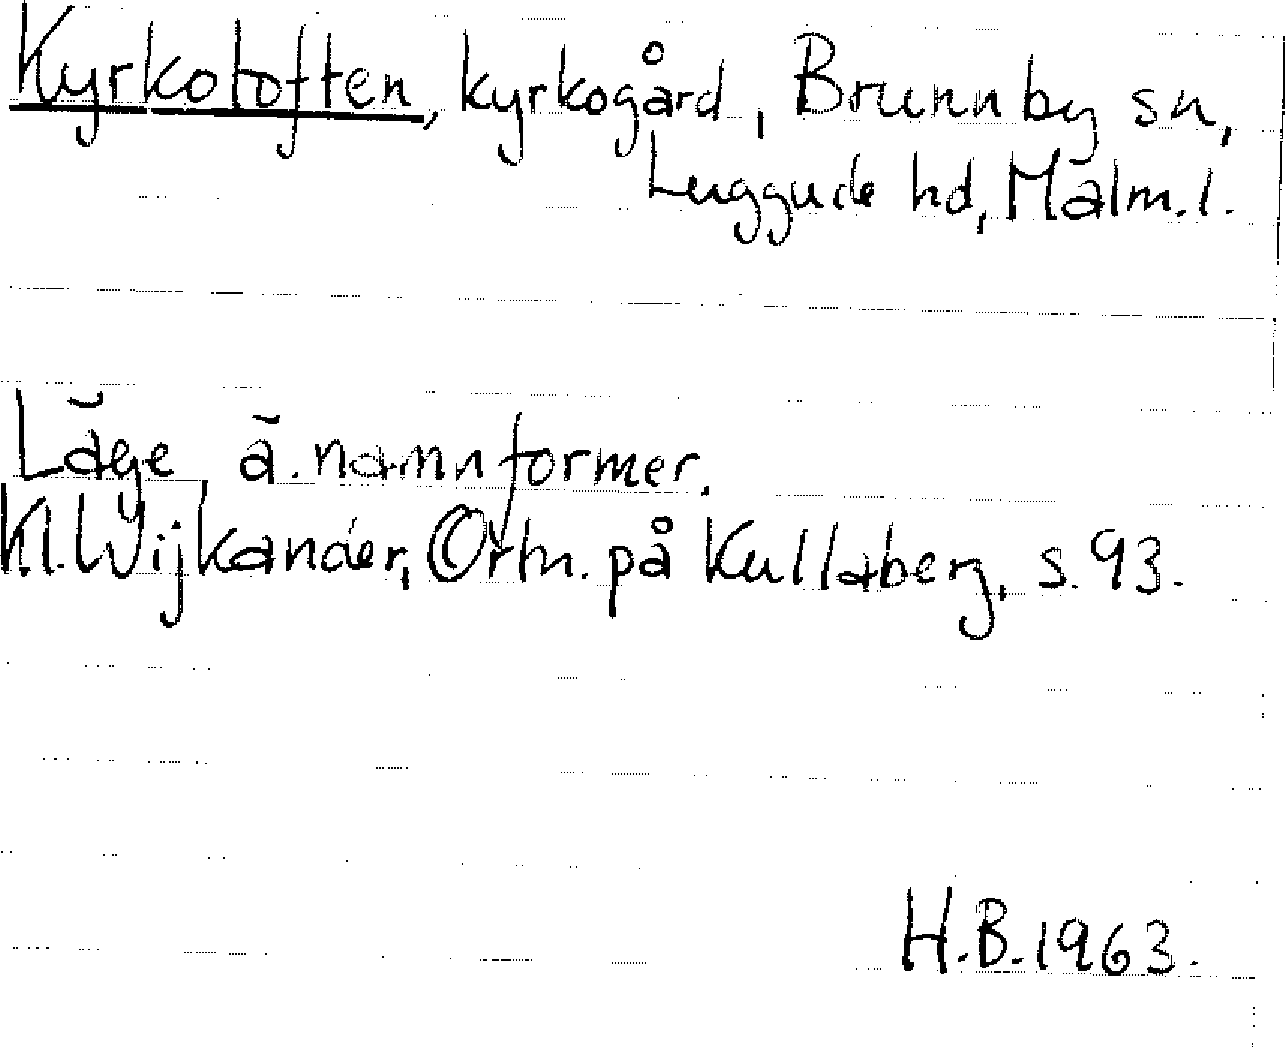 Kyrkotoften, kyrkogård, Brunnby sn,
Luggude hd, Malm.l.
Läge, ä. namnformer.
Kl. Wijkander, Ortn. på Kullaberg, s. 93.
H.B. 1963.